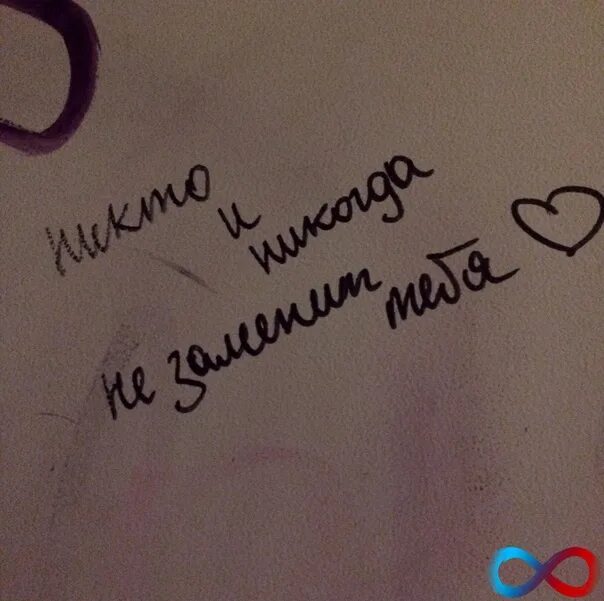 никто и никогда
не заменит тебя